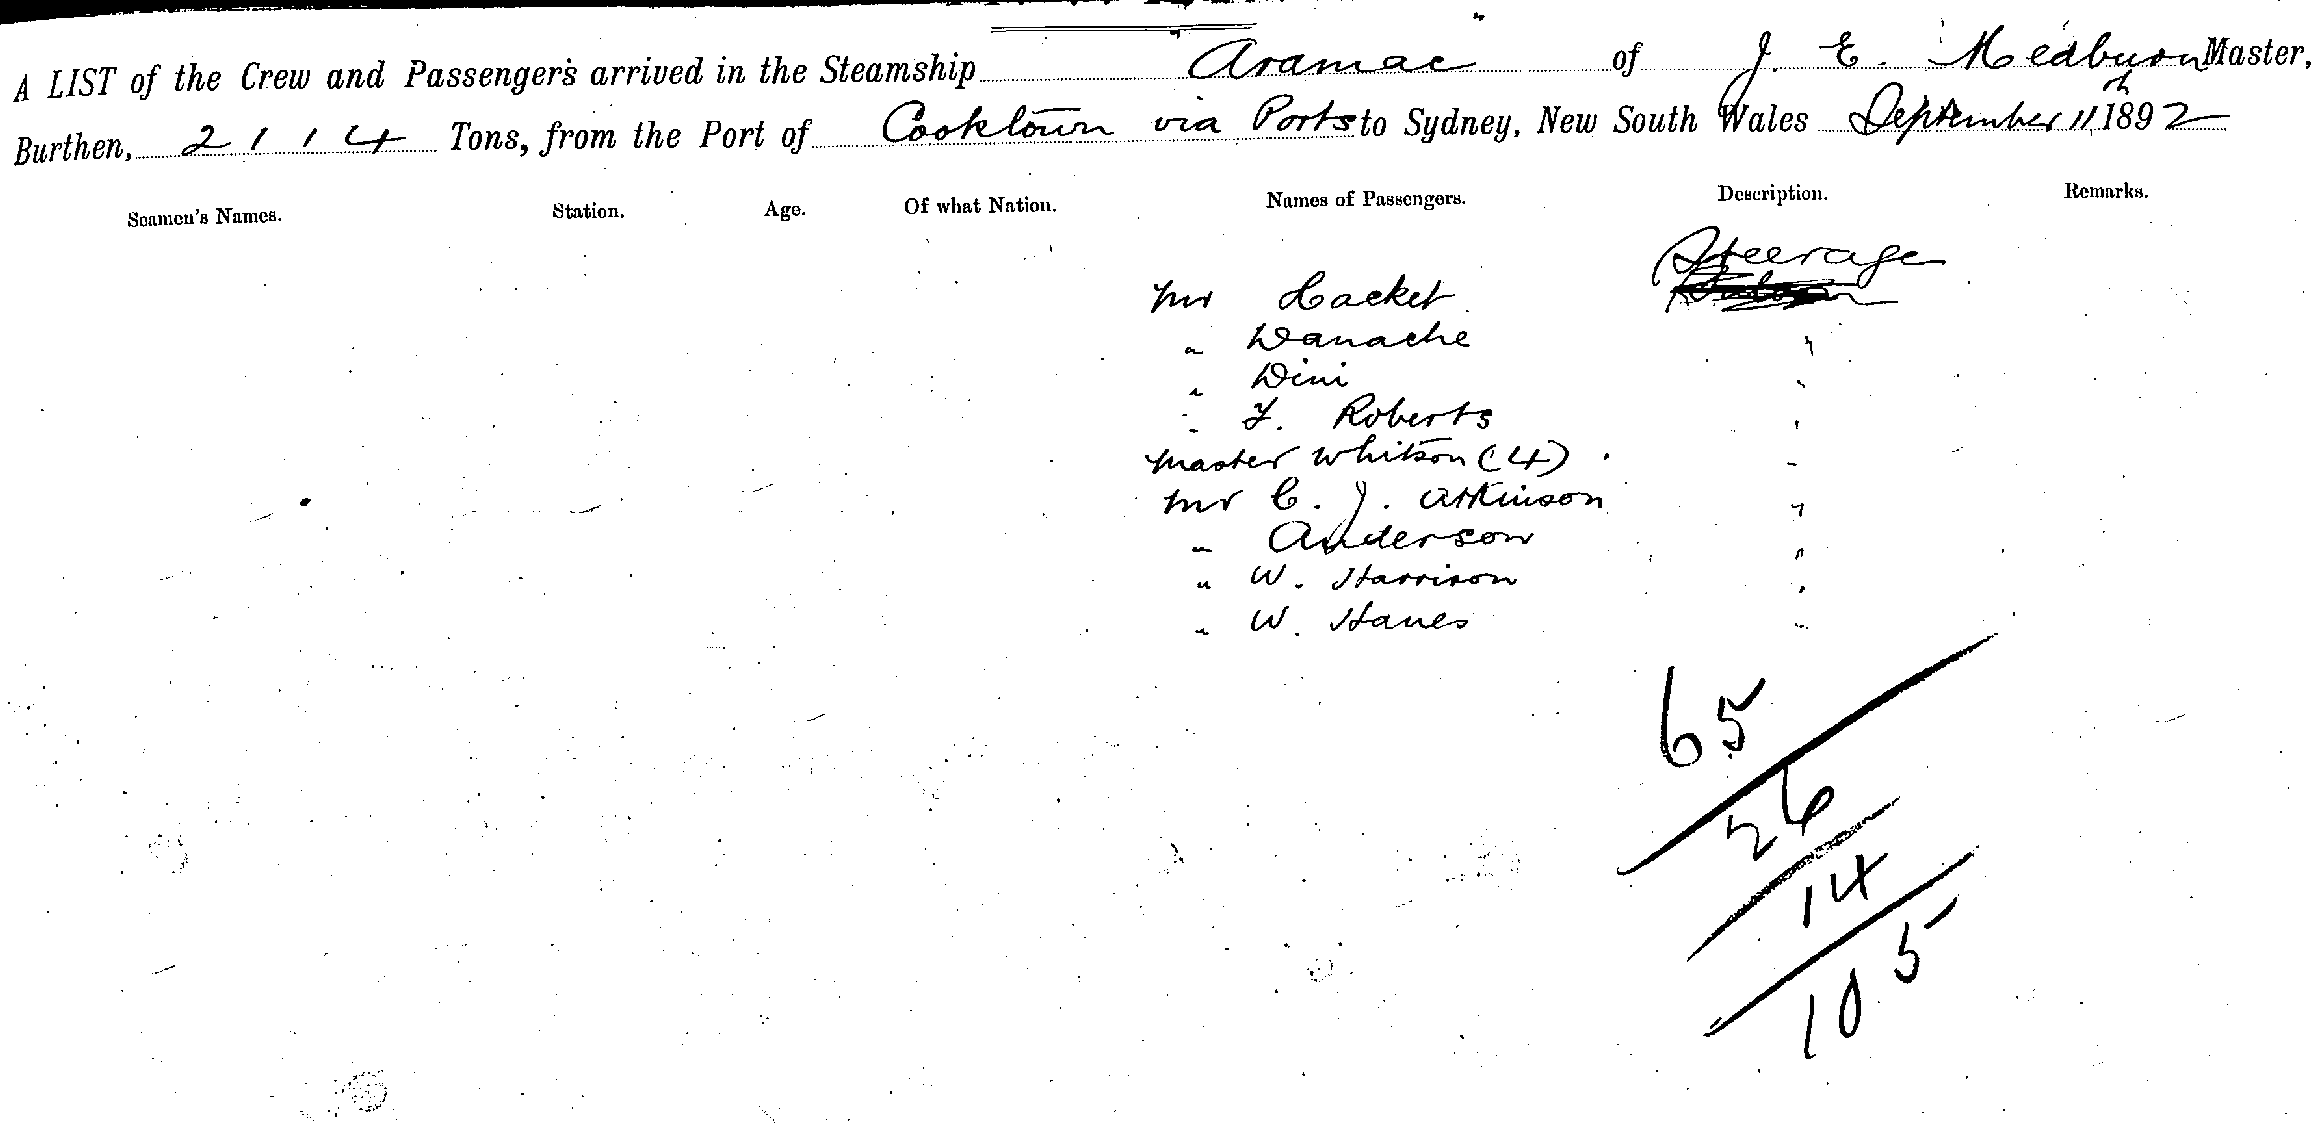 A LIST of the Crew and Passengers arrived in the Steamship "Aramac" of J. E. Medburn Master,
Burthen, 2114 Tons, from the Port of Cooktown via Ports to Sydney, New South Wales September 11th 1892
Seamen's Names. Station. Age. Of what Nation. Names of Passengers. Description. Remarks.
Steerage
Mr Hacket
" Danache
" Dini
" F. Roberts "
Master Whitson (4) "
Mr C. J. Atkinson "
" Anderson "
" W. Harrison "
" W. Hanes "
65
26
14
105